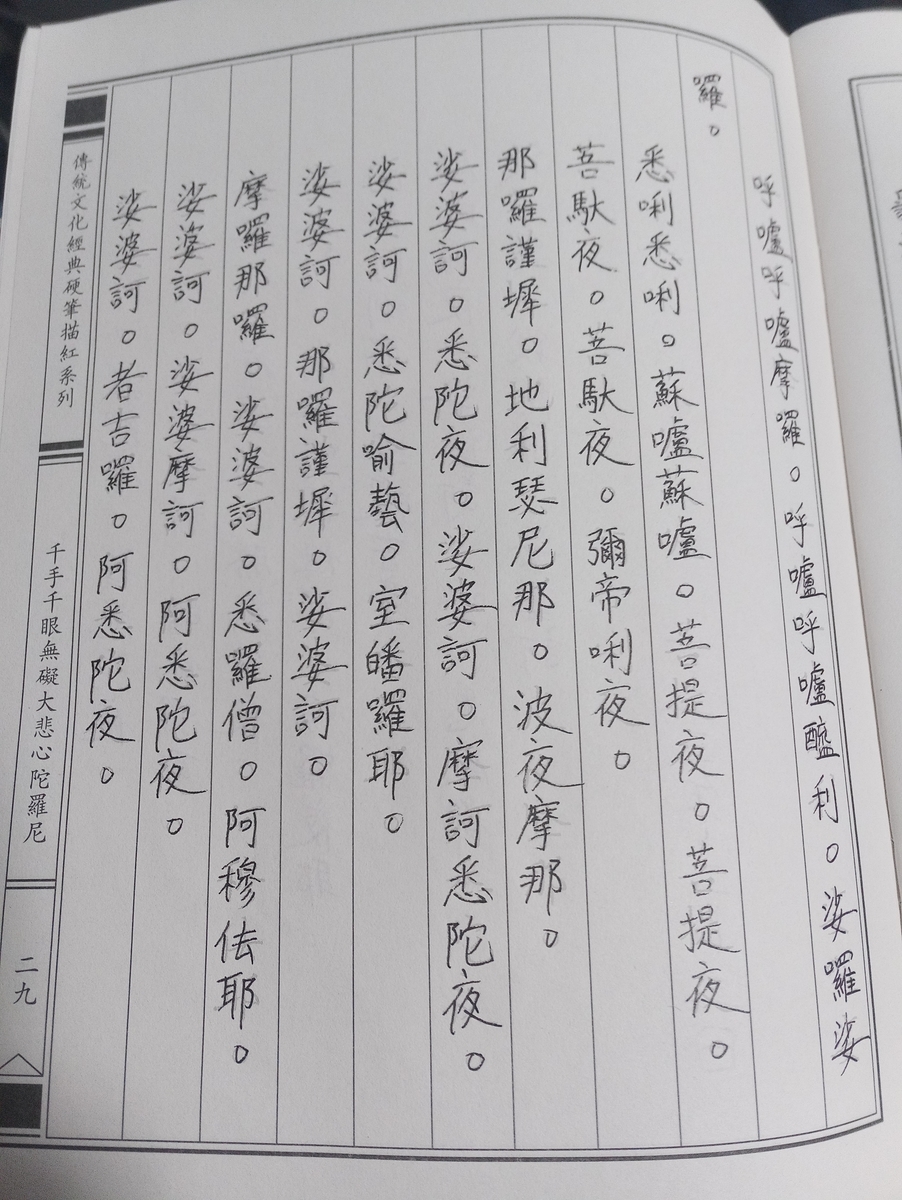 呼嚧呼嚧摩囉。呼嚧呼嚧醯利。娑囉娑
囉。
悉唎悉唎。蘇嚧蘇嚧。菩提夜。菩提夜。
菩馱夜。菩馱夜。彌帝唎夜。
那囉謹墀。地利瑟尼那。波夜摩那。
娑婆訶。悉陀夜。娑婆訶。摩訶悉陀夜。
娑婆訶。悉陀喻藝。室皤囉耶。
娑婆訶。那囉謹墀。娑婆訶。
摩囉那囉。娑婆訶。悉囉僧。阿穆佉耶。
娑婆訶。娑婆摩訶。阿悉陀夜。
娑婆訶。者吉囉。阿悉陀夜。
傳統文化經典硬筆描紅系列
千手千眼無礙大悲心陀羅尼
二九